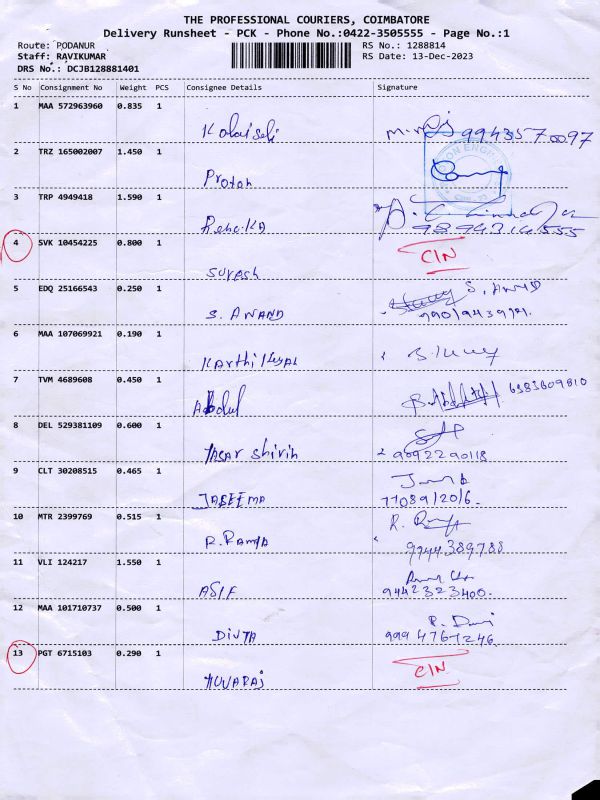 THE PROFESSIONAL COURIERS, COIMBATORE
Delivery Runsheet - PCK - Phone No.:0422-3505555 - Page No.:1
Route: PODANUR
RS No.: 1288814
Staff: RAVIKUMAR
RS Date: 13-Dec-2023
DRS No.: DCJB128881401
S No Consignment No Weight PCS Consignee Details Signature
1 MAA 572963960 0.835 1
9943570097
2 TRZ 165002007 1.450 1
Proton
3 TRP 4949418 1.590 1
9894314555
4 SVK 10454225 0.800 1 CIN
suresh
5 EDQ 25166543 0.250 1 S. ANAND
S. ANAND
6 MAA 107069921 0.190 1
7 TVM 4689608 0.450 1
Abdul 6383609810
8 DEL 529381109 0.600 1
9092290118
9 CLT 30208515 0.465 1
JASEEMA 7708912016.
10 MTR 2399769 0.515 1 R.
R. Ramya 9744389788
11 VLI 124217 1.550 1
ASIF 9442323400.
12 MAA 101710737 0.500 1
DIVYA 9994767246
13 PGT 6715103 0.290 1 CIN
YUVARAJ